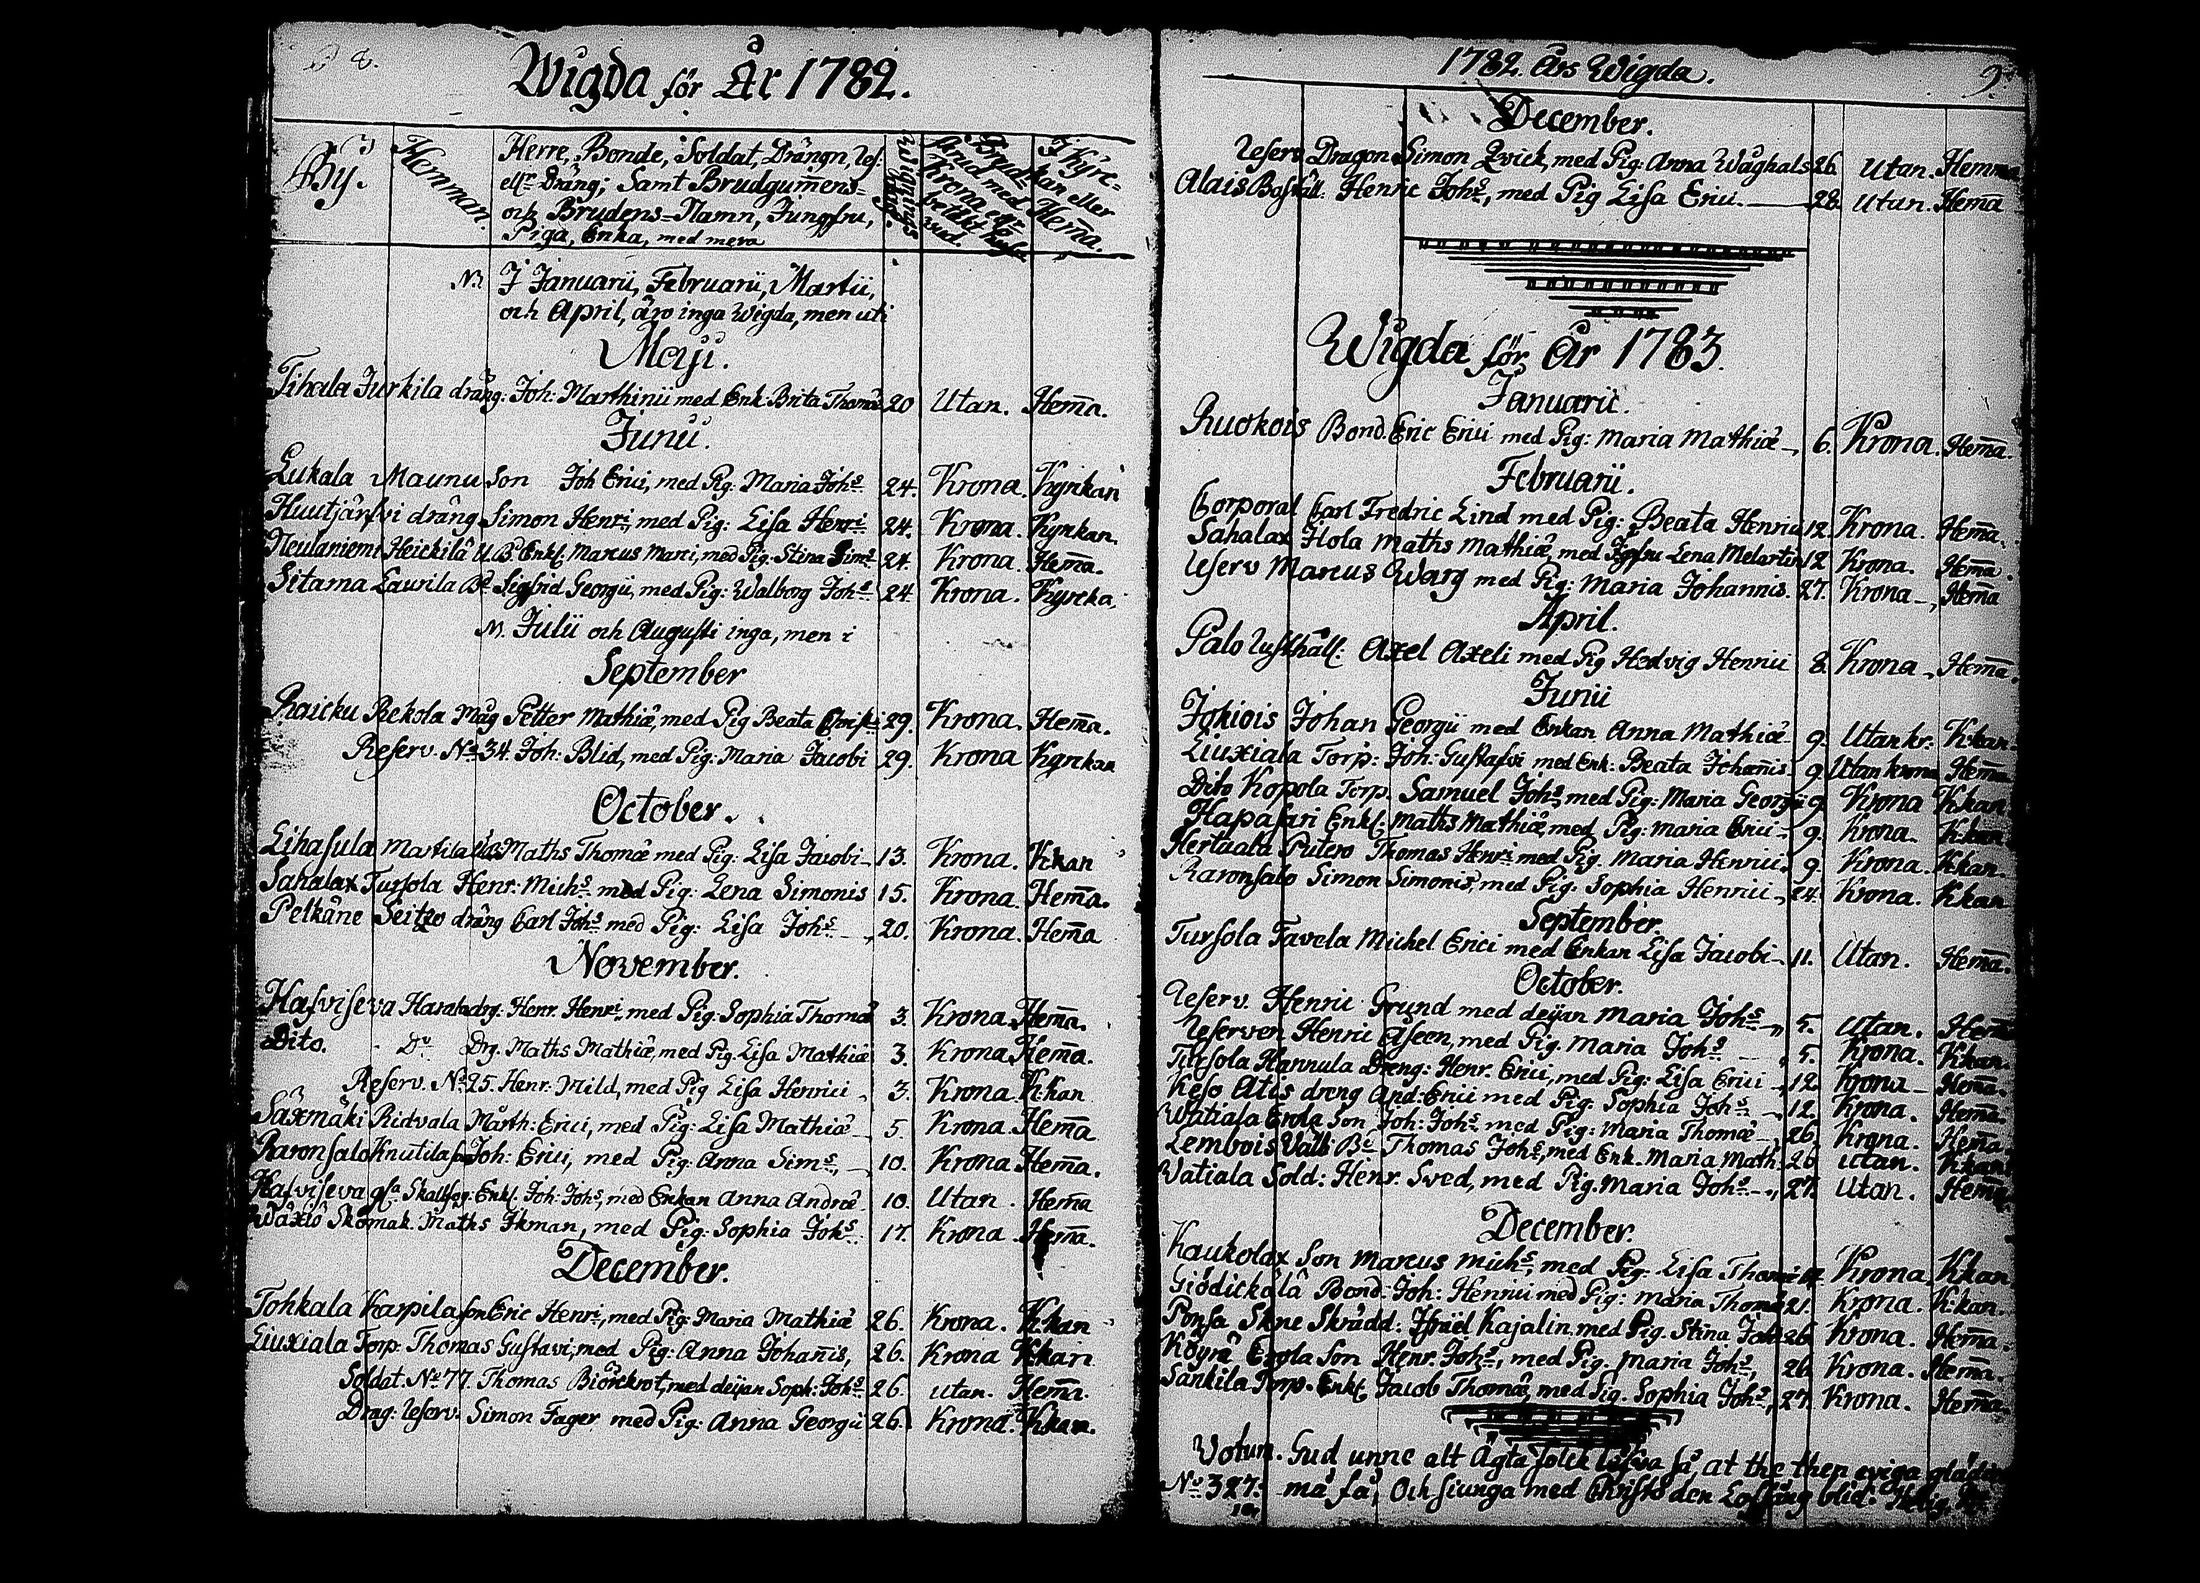 8.
Wigda för År 1782.
By.
Hemman.
Herre, Bonde, Soldat, Drängn, Res:
ellr Dräng; Samt Brudgummens=
och Brudens=Namn, Jungfru,
Piga, Enka, med mera
Brud med Krona
I Kyrc=
kan eller
Hem̄a.
NB. I Januarii, Februarii, Martii,
och April, äro inga Wigda, men uti
Maji.
Tihala Jurkila dräng: Joh: Marthinii med Enk: Brita Thomæ 20 Utan. Hem̄a.
Junii.
Lukala Maunu Son Joh Erici, med Pig: Maria Johs. 24. Krona. Kyrkan
Huutjärfvi dräng Simon Henri, med Pig: Lisa Henri 24. Krona. Kyrkan.
Neulaniemi Heickilä U.B. Enkl. Marcus Marci, med Pig. Stina Sims 24. Krona. Hem̄a.
Sitama Laurila Be Sigfrid Georgii, med Pig: Walborg Johs. 24 Krona. Kyrcka.
N. Julii och Augusti inga, men i
September
Raicku Rekola Måg Petter Mathiæ, med Pig Beata Christi: 29. Krona. Hem̄a.
Reserv. No 34. Joh: Blid, med Pig: Maria Jacobi 29. Krona Kyrckan
October.
Lihasula Matila Maths Thomæ med Pig: Lisa Jacobi 13. Krona. K:kan
Sahalax Tursola Henr: Michs. med Pig: Lena Simonis 15. Krona. Hem̄a.
Pelkäne Seitzo dräng Carl Johs. med Pig: Lisa Johs. 20. Krona. Hem̄a
November.
Hafviseva Harala drg. Henr. Henri, med Pig. Sophia Thomæ 3. Krona. Hem̄a.
Dito. Do Drg. Maths Mathiæ, med Pig. Lisa Mathiæ 3. Krona. Hem̄a.
Reserv. No 25. Henr: Mild, med Pig Lisa Henrici 3. Krona. K:kan
Säxmäki Ridvala Marth: Erici, med Pig: Lisa Mathiæ 5. Krona. Hem̄a
Raronsalo Knutila son Joh: Erici, med Pig: Anna Sims. 10. Krona. Hem̄a.
Hafviseva Enkl. Joh: Johs, med Enkan Anna Andreæ 10. Utan. Hem̄a
Wäxiö Skomak. Maths Ikman, med Pig: Sophia Johs. 17. Krona. Hem̄a.
December.
Tohkala Karpila son Eric Henri, med Pig: Maria Mathiæ 26. Krona. K:kan
Liuxiala Torp: Thomas Gustavi, med Pig: Anna Johan̄is, 26. Krona K:kan
Soldat. No 77. Thomas Biörckrot, med dejan Soph: Johs. 26. Utan. Hem̄a.
Drag: Reserv: Simon Fager med Pig: Anna Georgii 26. Krona. K:kan.
1782. Års Wigda.
9.
December.
Reserv. Dragon Simon Qvick, med Pig: Anna Wåghals 26. Utan. Hemma
Alais Boställ. Henric Johs, med Pig Lisa Erici. 28. Utan. Hem̄a
Wigda för År 1783.
Januarii.
Ruokois Bond. Eric Erici med Pig: Maria Mathiæ 6. Krona. Hem̄a.
Februarii.
Corporal Carl Fredric Lind med Pig: Beata Henrici 12. Krona. Hem̄a.
Sahalax Hola Maths Mathiæ, med Jgfru Lena Melartin 12 Krona. Hem̄a.
Reserv Marcus Warg med Pig: Maria Johannis. 27. Krona Hem̄a
April.
Palo Rusthåll: Axel Axeli med Pig Hedvig Henrici 8. Krona Hem̄a.
Junii
Jokiois Johan Georgii med Enkan Anna Mathiæ 9. Utan kr: K:kan.
Liuxiala Torp: Joh: Gustafvi med Enk: Beata Johan̄is 9. Utan krona Hem̄a
Dito Kopola Torp. Samuel Johs, med Pig: Maria Georgii 9. Krona K:kan
Hapasari Enkl: Maths Mathiæ, med Pig: Maria Erici 9. Krona. K:kan
Hertuala Putero Thomas Henri med Pig. Maria Henrici 9. Krona K:kan.
Raronsalo Simon Simonis, med Pig: Sophia Henrici 24. Krona. K:kan
September.
Tursola Tavela Michel Erici med Enkan Lisa Jacobi 11. Utan. Hem̄a.
October.
Reserv. Henric Grund med dejan Maria Johs. 5. Utan. Hem̄a
Reserven Henric Aseen, med Pig. Maria Johs. 5. Krona. K:kan.
Tursola Hannula Dreng: Henr. Erici, med Pig: Lisa Erici 12. Krona Hem̄a.
Keso Atis dreng And: Erici med Pig: Sophia Johs. 12. Krona. Hem̄a
Watiala Erola Son Joh: Johs. med Pig: Maria Thomæ 26. Krona. Hem̄a
Lembois Be Thomas Johs, med Enk. Maria Math. 26 Utan. K:kan
Watiala Sold: Henr. Sved, med Pig. Maria Johs. 27. Utan. Hem̄a
December.
Kaukolax Son Marcus Michs, med Pig: Lisa Thomæ Krona. K:kan
Giödickälä Bond. Joh: Henrici med Pig: Maria Thomæ 21. Krona. K:kan.
Ponsa Skne Skrädd: Israël Kajalin, med Pig. Stina 26. Krona. Hem̄a.
Köyrä Erola Son Henr. Johs, med Pig. Maria Johs, 26. Krona. Hem̄a.
Sankila Torp. Enkl. Jacob Thomæ, med Pig. Sophia Johs, 27. Krona. Hem̄a.
Votum. Gud unne alt Ägta folck lefva så, at the then eviga
No 327: må få, Och siunga med Christo den